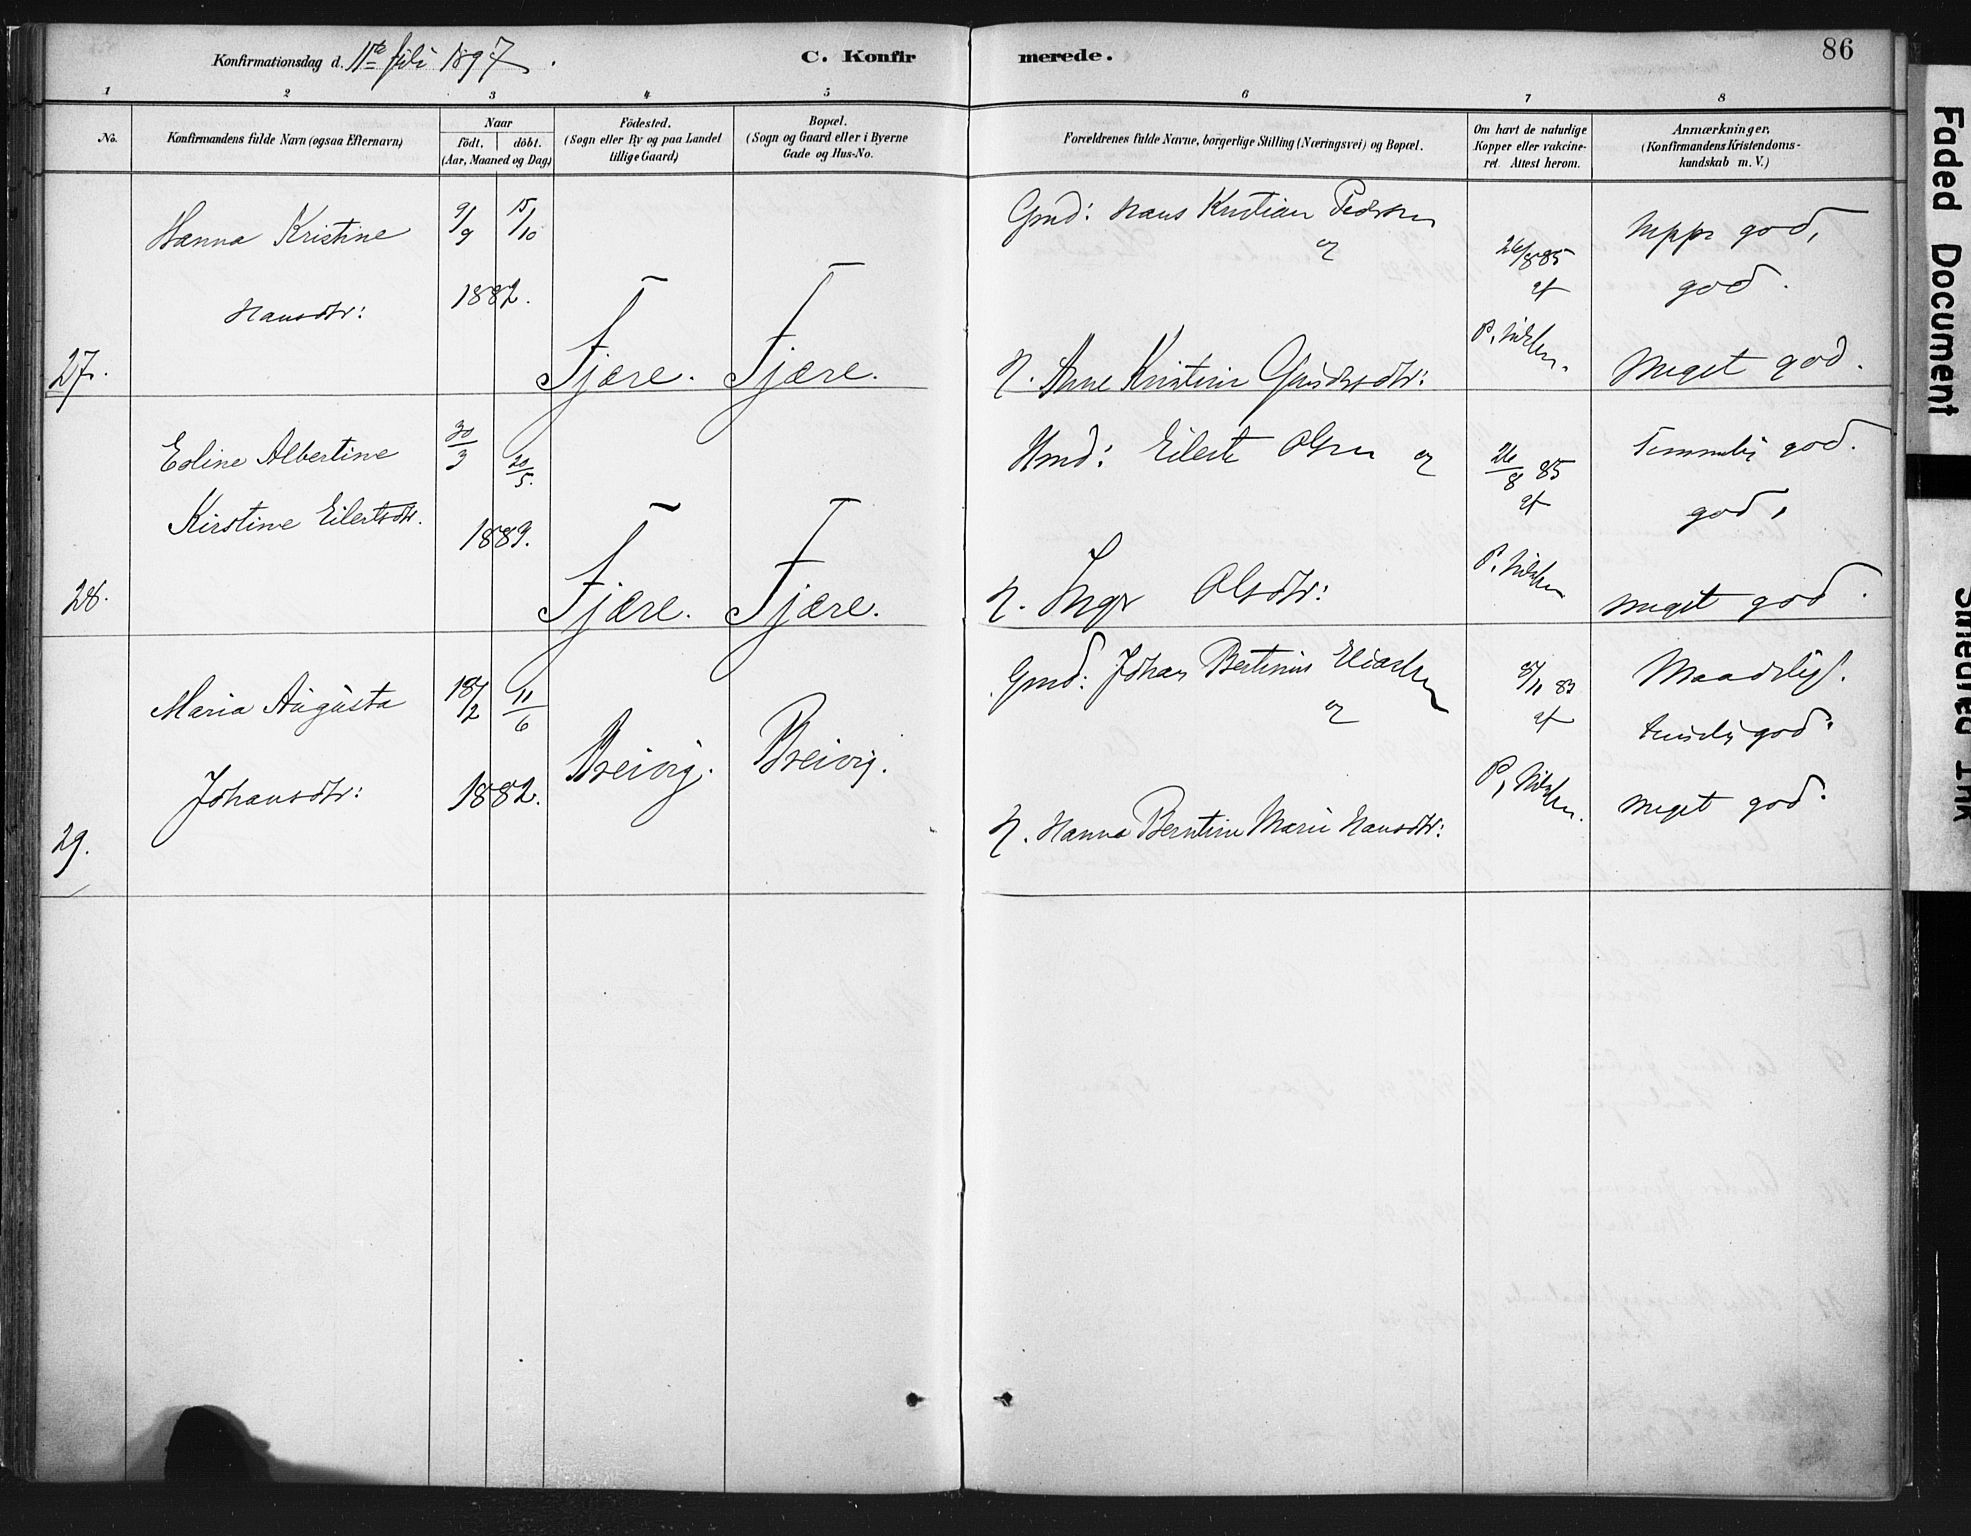 Konfirmationsdag d. 11te Juli 1897.
C. Konfirmerede.
86
1 2 3 4 5 6 7 8
No.
Konfirmandens fulde Navn (ogsaa Efternavn)
Naar
födt. döbt.
(Aar, Maaned og Dag)
Födested.
(Sogn eller By og paa Landet
tillige Gaard)
Bopæl.
(Sogn og Gaard eller i Byerne
Gade og Hus-No.
Forældrenes fulde Navne, borgerlige Stilling (Næringsvei) og Bopæl.
Om havt de naturlige
Kopper eller vakcine-
ret. Attest herom.
Anmærkninger,
(Konfirmandens Kristendoms-
kundskab m. V.)
27.
Hanna Kristine
Hansdtr:
9/9 15/10
1882.
Fjære. Fjære.
Gmd: Hans Kristian Pedersen
og
H. Anne Kristine
26/8 85
af
P. Nielsen.
god,
god.
Meget god.
28.
Edine Albertine
Kirstine Eilertsdtr.
30/3 20/5.
1882.
Fjære. Fjære.
Hmd: Eilert Olsen og
H. Inger Olsdtr:
26/8 85
af
P. Nielsen
Temmelig god.
god,
meget god.
29.
Maria Augusta
Johansdtr:
18/2 11/6
1882.
Breivig. Breivig.
Gmd: Johan Bertinius Eliassen
og
H. Hanna Berntine Marie Hansdtr:
8/11 83
af
P. Nielsen.
Maadelig.
temelig god.
meget god.
Faded Document
Smeared Ink